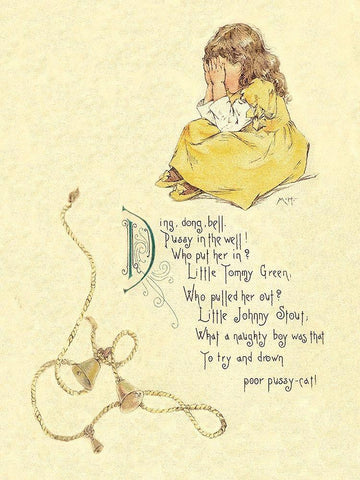 MH
Ding, dong, bell.
Pussy in the well!
Who put her in?
Little Tommy Green,
Who pulled her out?
Little Johnny Stout;
What a naughty boy was that
To try and drown
poor pussy-cat!